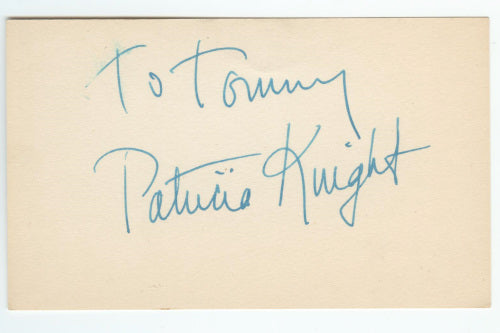 To Tommy
Patricia Knight